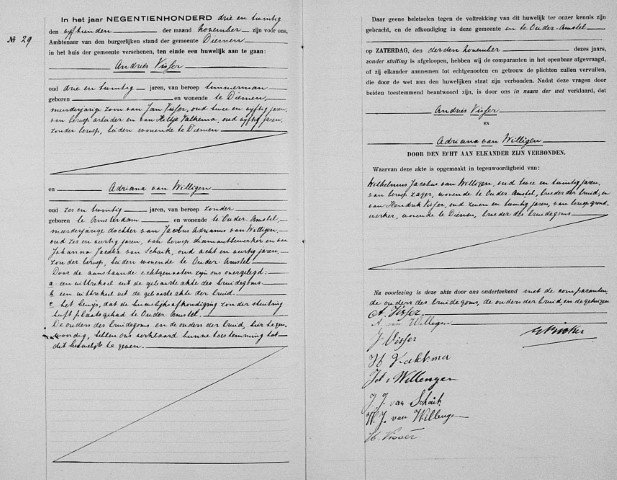 № 29
In het jaar NEGENTIENHONDERD drie en twintig
den vijftienden der maand November zijn voor ons,
Ambtenaar van den burgerlijken stand der gemeente Diemen
in het huis der gemeente verschenen, ten einde een huwelijk aan te gaan:
Andries Visser
oud drie en twintig jaren, van beroep timmerman
geboren en wonende te Diemen,
meerderjarige zoon van Jan Visser, oud twee en vijftig jaren,
van beroep arbeider en van Hiltje Valkema, oud vijftig jaren,
zonder beroep, beiden wonende te Diemen
en Adriana van Willigen
oud zes en twintig jaren, van beroep zonder
geboren te Amsterdam en wonende te Ouder Amstel,
meerderjarige dochter van Jacobus Adrianus van Willigen,
oud zes en veertig jaren, van beroep diamantbewerker en van
Johanna Jacoba van Schaik, oud acht en veertig jaren,
zonder beroep, beiden wonende te Ouder Amstel
Door de aanstaande echtgenooten zijn ons overgelegd:
a. een uittreksel uit de geboorte akte des bruidegoms
b. een uittreksel uit de geboorte akte der bruid
c. het bewijs, dat de huwelijksafkondiging zonder stuiting
heeft plaats gehad te Ouder Amstel.
De ouders des bruidegoms en de ouders der bruid, hier tegen-
woordig, hebben ons verklaard hunne toestemming tot
dit huwelijk te geven.
Daar geene beletselen tegen de voltrekking van dit huwelijk ter onzer kennis zijn
gebracht, en de afkondiging in deze gemeente en te Ouder Amstel
op ZATERDAG, den derden November dezes jaars,
zonder stuiting is afgeloopen, hebben wij de comparanten in het openbaar afgevraagd,
of zij elkander aannemen tot echtgenooten en getrouw de plichten zullen vervullen,
die door de wet aan den huwelijken staat verbonden zijn. Nadat deze vragen door
beiden toestemmend beantwoord zijn, is door ons in naam der wet verklaard, dat
Andries Visser
en
Adriana van Willigen
DOOR DEN ECHT AAN ELKANDER ZIJN VERBONDEN.
Waarvan deze akte is opgemaakt in tegenwoordigheid van:
Wilhelmus Jacobus van Willigen, oud twee en twintig jaren,
van beroep wonende te Ouder Amstel, broeder der bruid, en
van Hendrik Visser, oud zeven en twintig jaren, van beroep grond-
werker, wonende te Diemen, broeder des bruidegoms
Na voorlezing is deze akte door ons onderteekend met de comparanten,
de ouders des bruidegoms, de ouders der bruid en de getuigen
A. Visser
A. van Willigen
J. Visser
H. Valkema
J. J. van Schaik
W. J. van Willigen
H. Visser